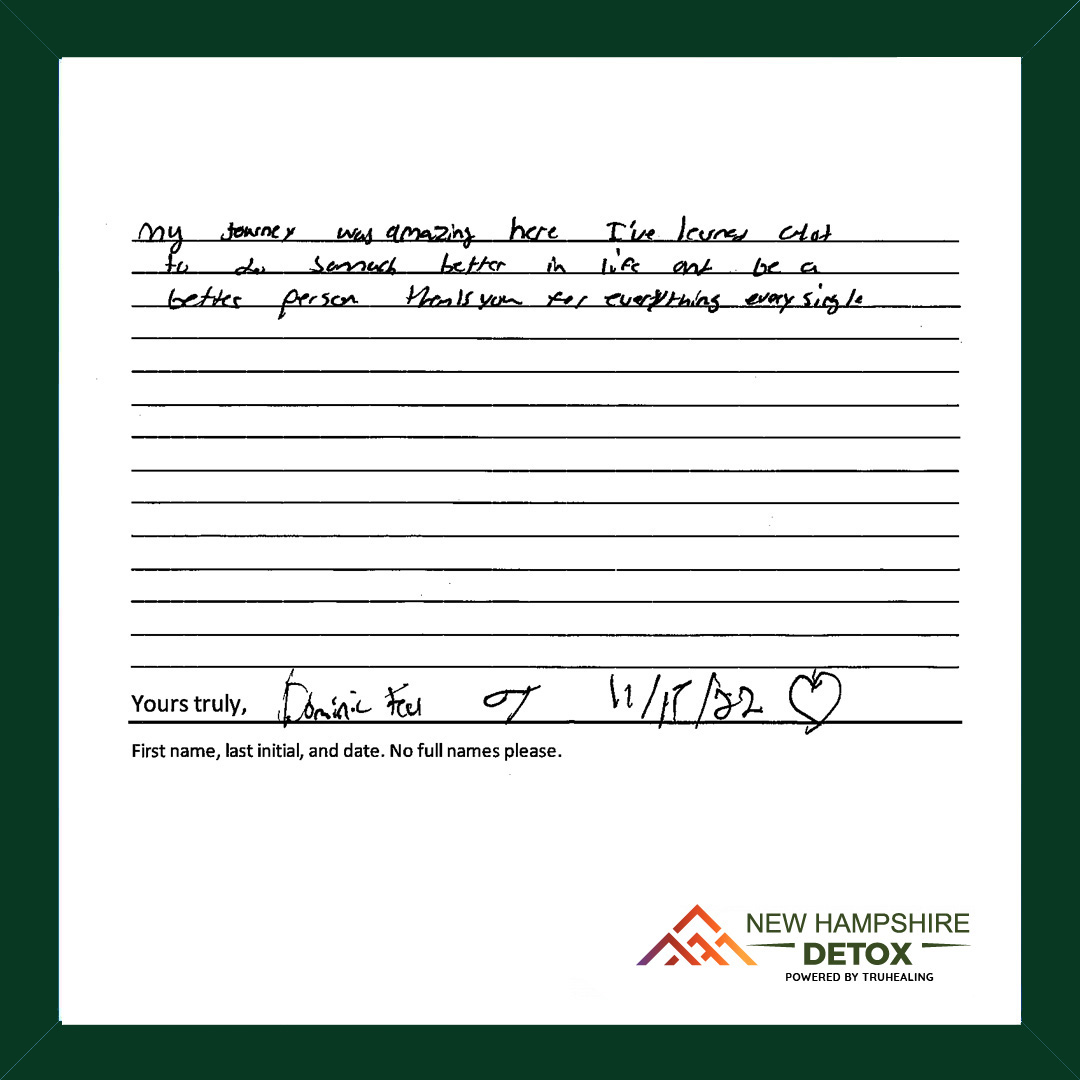 My journey was amazing here I've learned alot
to do somuch better in life and be a
better person thank you for everything every single
Yours truly, Dominic 11/15/22
First name, last initial, and date. No full names please.
NEW HAMPSHIRE
DETOX
POWERED BY TRUHEALING